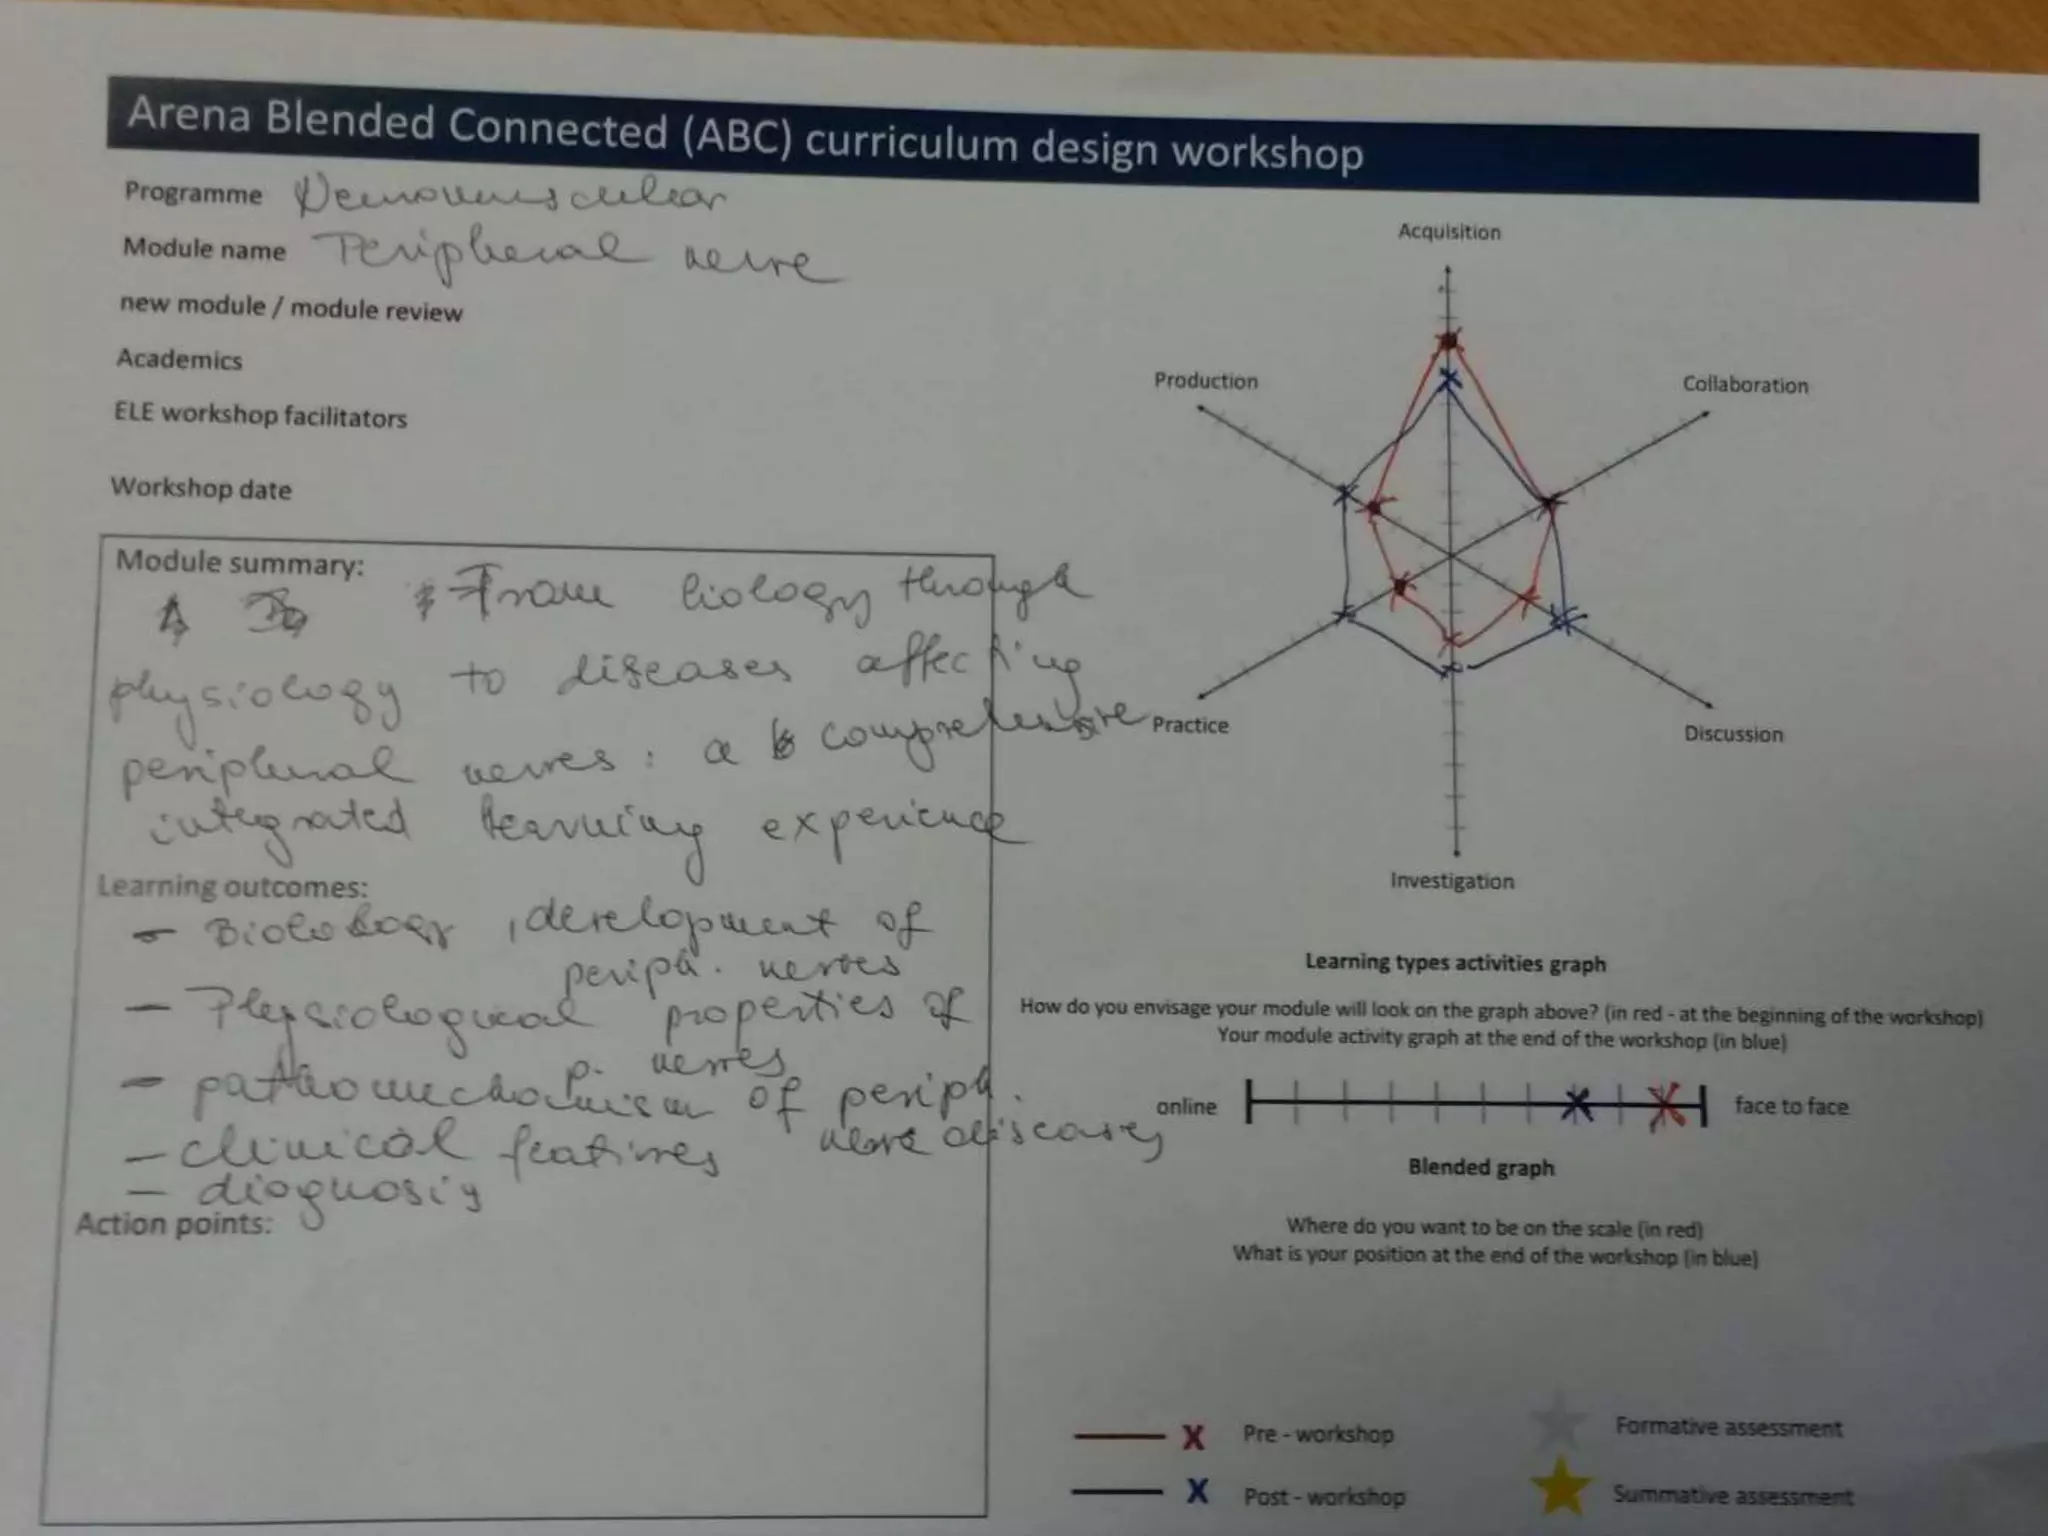 Arena Blended Connected (ABC) curriculum design workshop
Programme Neuromuscular
Module name Peripheral nerve
new module / module review
Academics
ELE workshop facilitators
Workshop date
Module summary:
From biology through
physiology to diseases affecting
peripheral nerves: a comprehensive
integrated learning experience
Learning outcomes:
- Biology, development of
periph. nerves
- Physiological properties of
p. nerves
- pathomechanism of periph.
nerve diseases
- clinical features
- diagnosis
Action points:
Acquisition
Production
Collaboration
Practice
Discussion
Investigation
Learning types activities graph
How do you envisage your module will look on the graph above? (in red - at the beginning of the workshop)
Your module activity graph at the end of the workshop (in blue)
online
face to face
Blended graph
Where do you want to be on the scale (in red)
What is your position at the end of the workshop (in blue)
X Pre - workshop
Formative assessment
X Post - workshop
Summative assessment